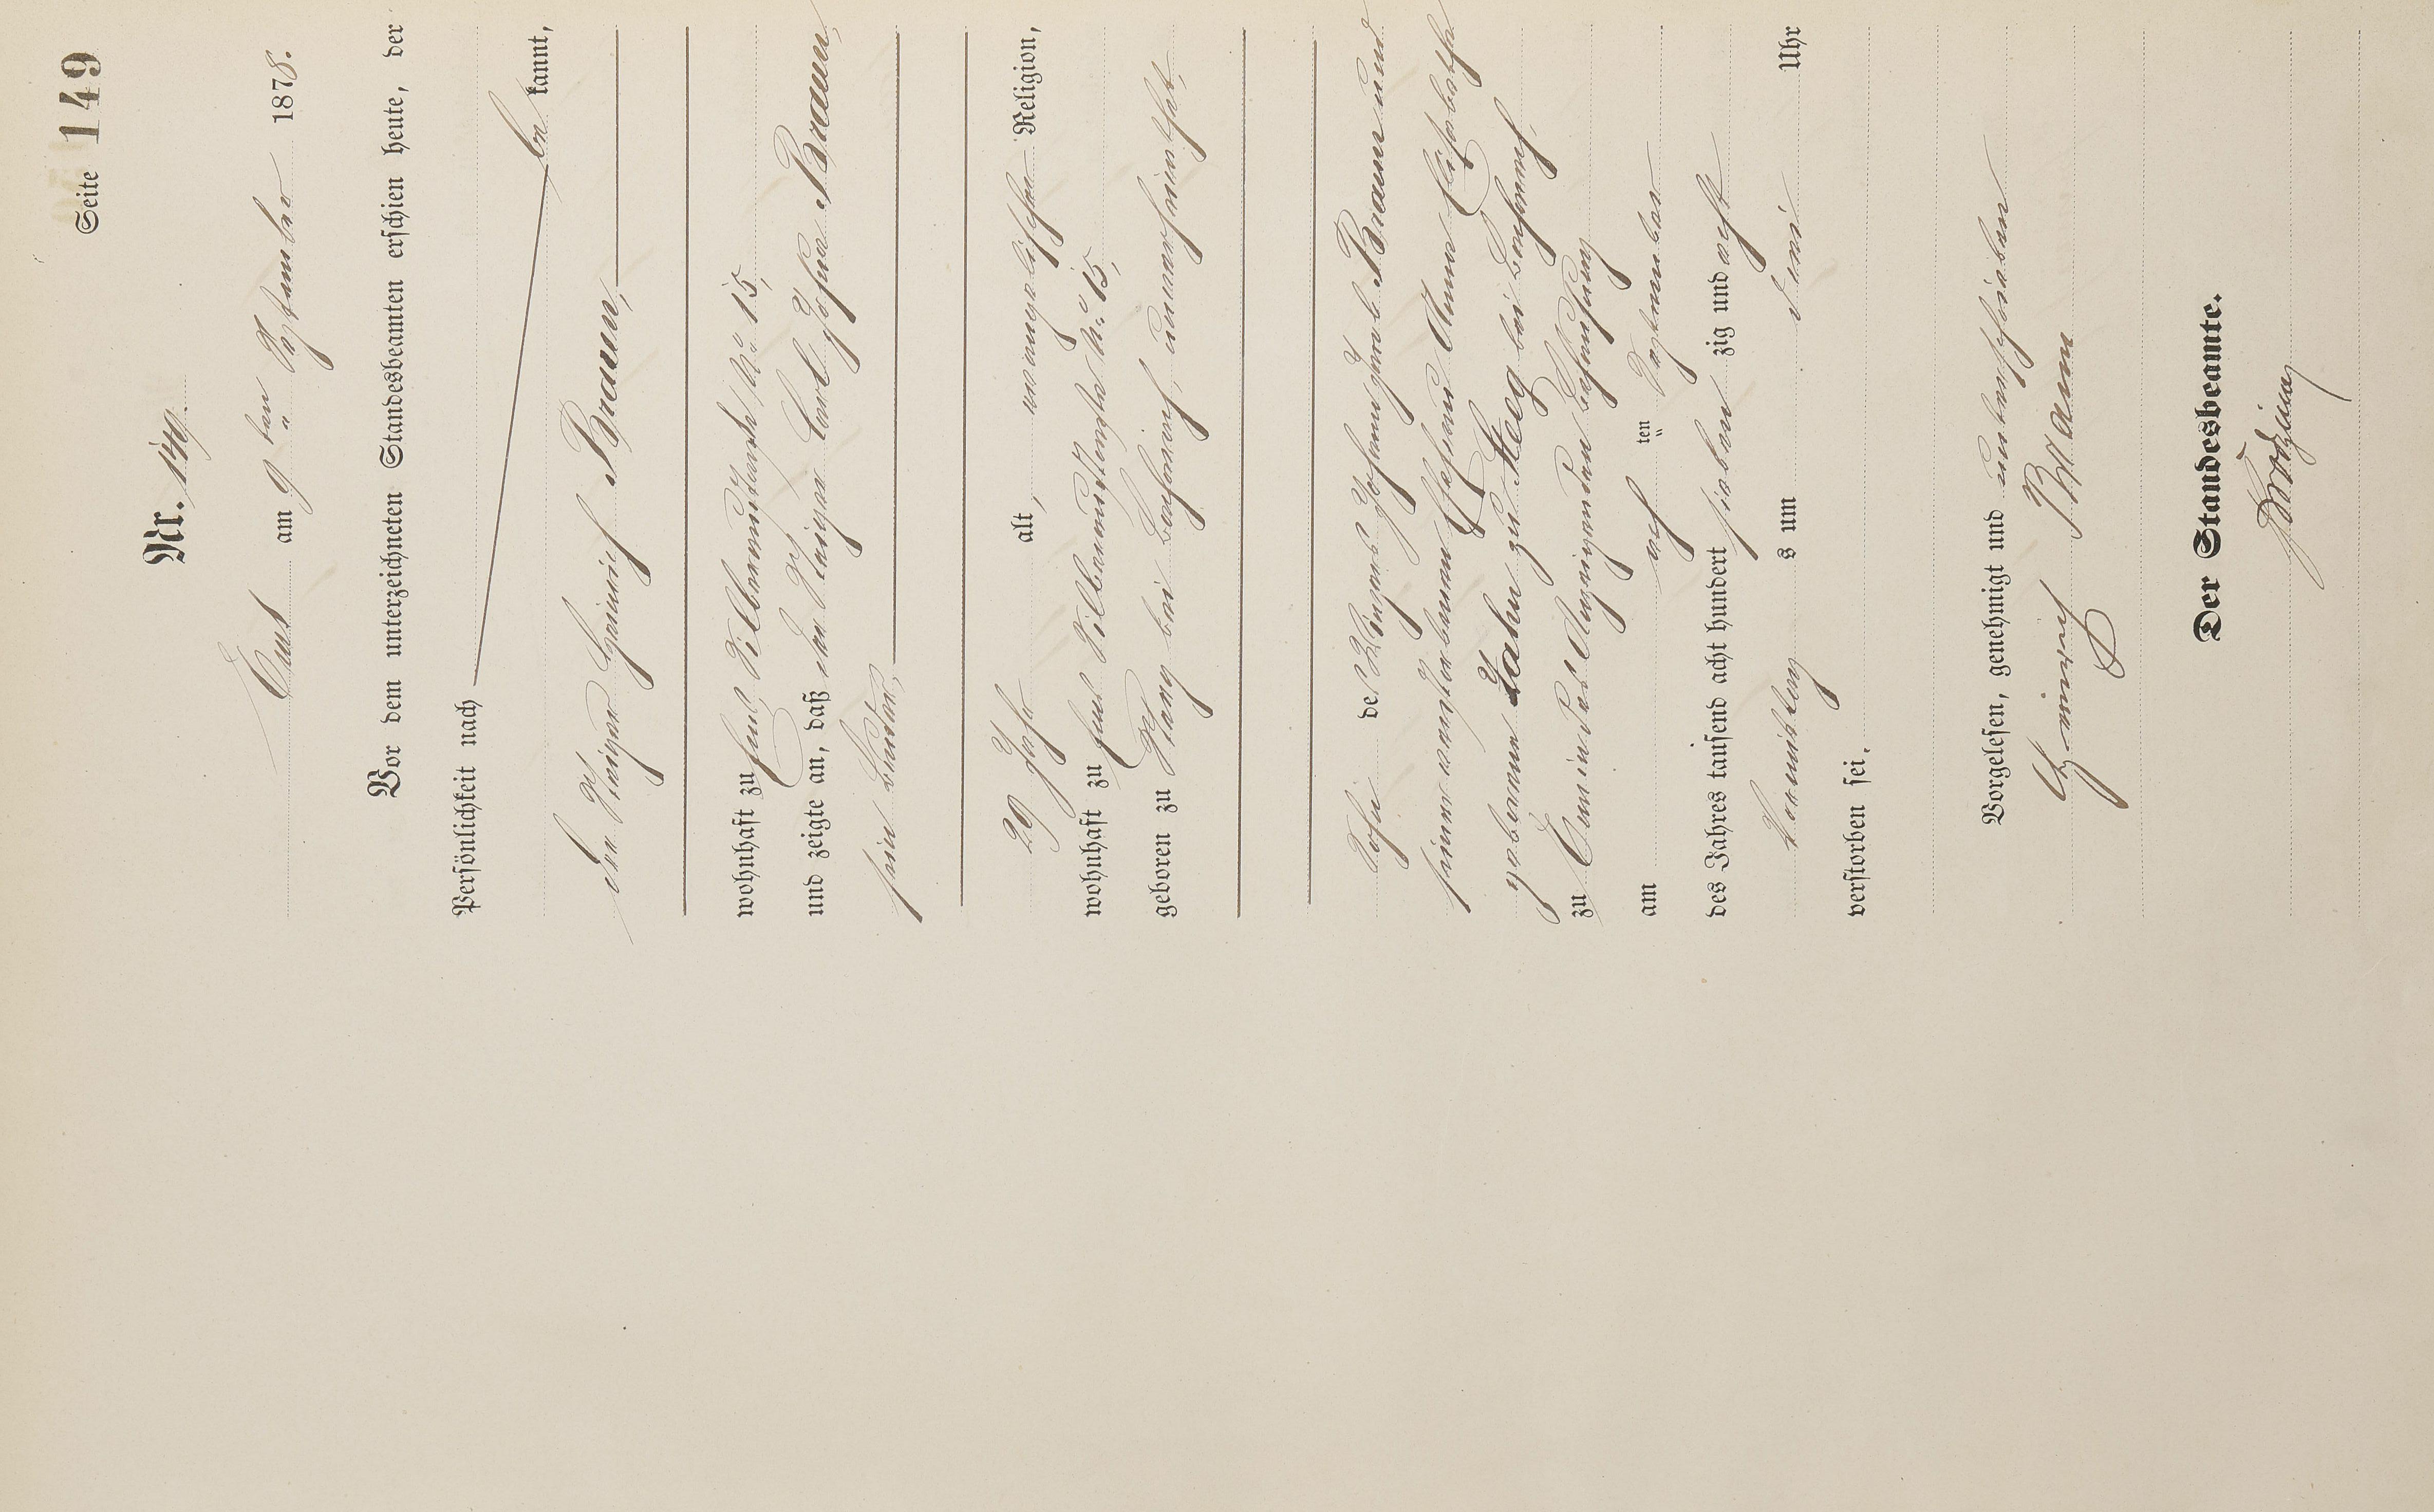 Seite 149
Nr. 149.
Ems am 9 ten September 1878.
Vor dem unterzeichneten Standesbeamten erschien heute, der
Persönlichkeit nach
be kannt,
der Heinrich Braun,
wohnhaft zu Ems, № 15,
und zeigte an, daß der Carl Johann Braun,
sein Bruder,
29 Jahre alt, evangelischer Religion,
wohnhaft zu Ems № 15,
geboren zu bei Bacharach, unverheirathet,
Sohn des Johann Jacob Braun und
seiner verstorbenen Ehefrau Anna Elisabeth
geborenen Jahn zu Steeg bei Bacharach,
zu Ems in des Anzeigenden Behausung
am acht ten September
des Jahres tausend acht hundert sieben zig und acht
Vormittags um drei Uhr
verstorben sei.
Vorgelesen, genehmigt und unterschrieben
Heinrich Braun
Der Standesbeamte.